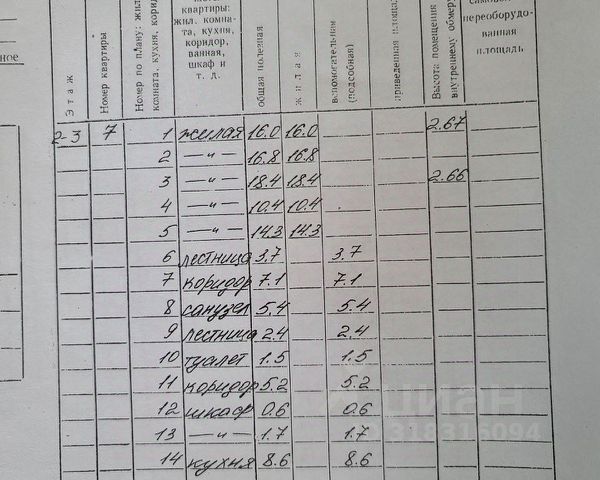 ное
Этаж
Номер квартиры
Номер по плану: жил.
комната, кухня, корид
квартиры:
жил. комна-
та, кухня,
коридор,
ванная,
шкаф и
т. д.
общая полезная
жилая
вспомогательная
(подсобная)
приведенная площадь
Высота помещений
внутреннему обмеру
переоборудо-
ванная
площадь
2-3 7 1 жилая 16.0 16.0 2.67
2 —"— 16.8 16.8
3 —"— 18.4 18.4 2.66
4 —"— 10.4 10.4
5 —"— 14.3 14.3
6 лестница 3.7 3.7
7 коридор 7.1 7.1
8 санузел 5.4 5.4
9 лестница 2.4 2.4
10 туалет 1.5 1.5
11 коридор 5.2 5.2
12 шкаф 0.6 0.6
13 —"— 1.7 1.7
14 кухня 8.6 8.6
циан
318316094